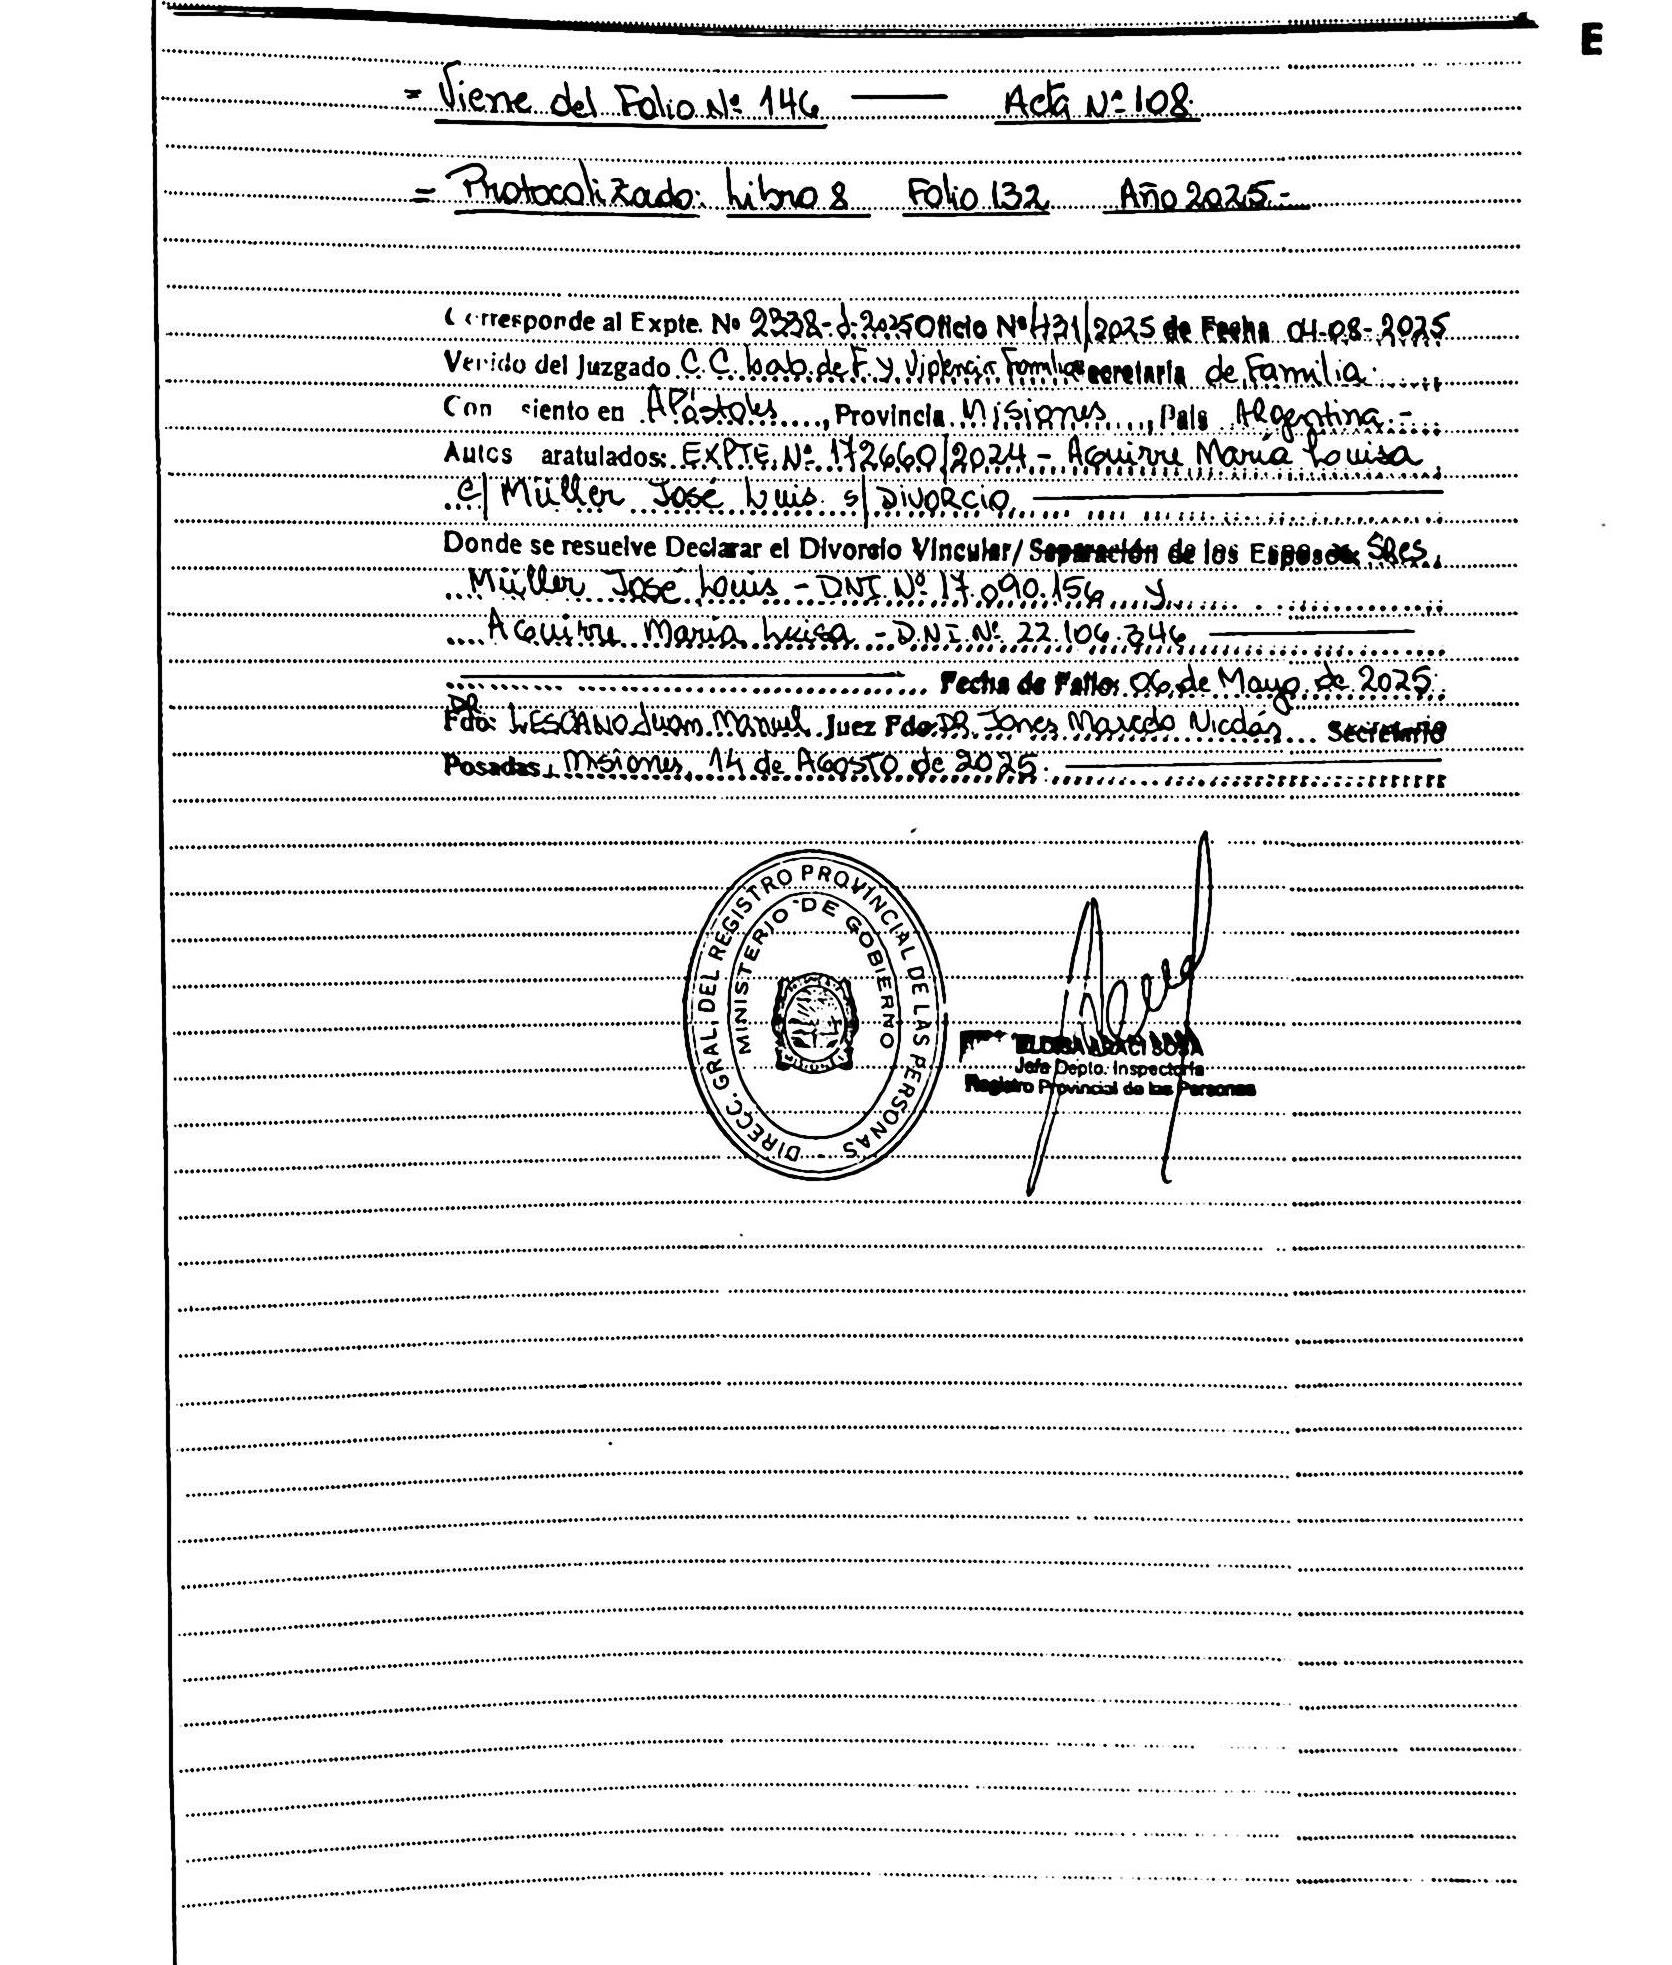 E
= Viene del Folio Nº 146 — Acta Nº 108.
= Protocolizado: Libro 8 Folio 132 Año 2025 -
Corresponde al Expte. Nº 2338-J-2025 Oficio Nº 431/2025 de Fecha 04-08-2025
Venido del Juzgado C.C. Lab. de F. y Violencia Familiar Secretaria de Familia.
Con siento en Apóstoles, Provincia Misiones, Pais Argentina.-
Autos aratulados: EXPTE. Nº 172660/2024 - Aguirre María Louisa
c/ Müller José Luis s/ DIVORCIO
Donde se resuelve Declarar el Divorcio Vincular/ Separación de los Esposos Sres.
Müller José Louis - DNI. Nº 17.090.156 y
Aguirre María Luisa - D.N.I. Nº 22.106.346
Fecha de Fallo: 06 de Mayo de 2025.
Fdo: DR LESCANO Juan Manuel Juez Fdo: DR. Jones Marcelo Nicolás Secretario
Posadas, Misiones, 14 de Agosto de 2025.
DIRECC. GRAL. DEL REGISTRO PROVINCIAL DE LAS PERSONAS -
MINISTERIO DE GOBIERNO
ELOISA ARACI SOSA
Jefe Depto. Inspectoría
Registro Provincial de las Personas